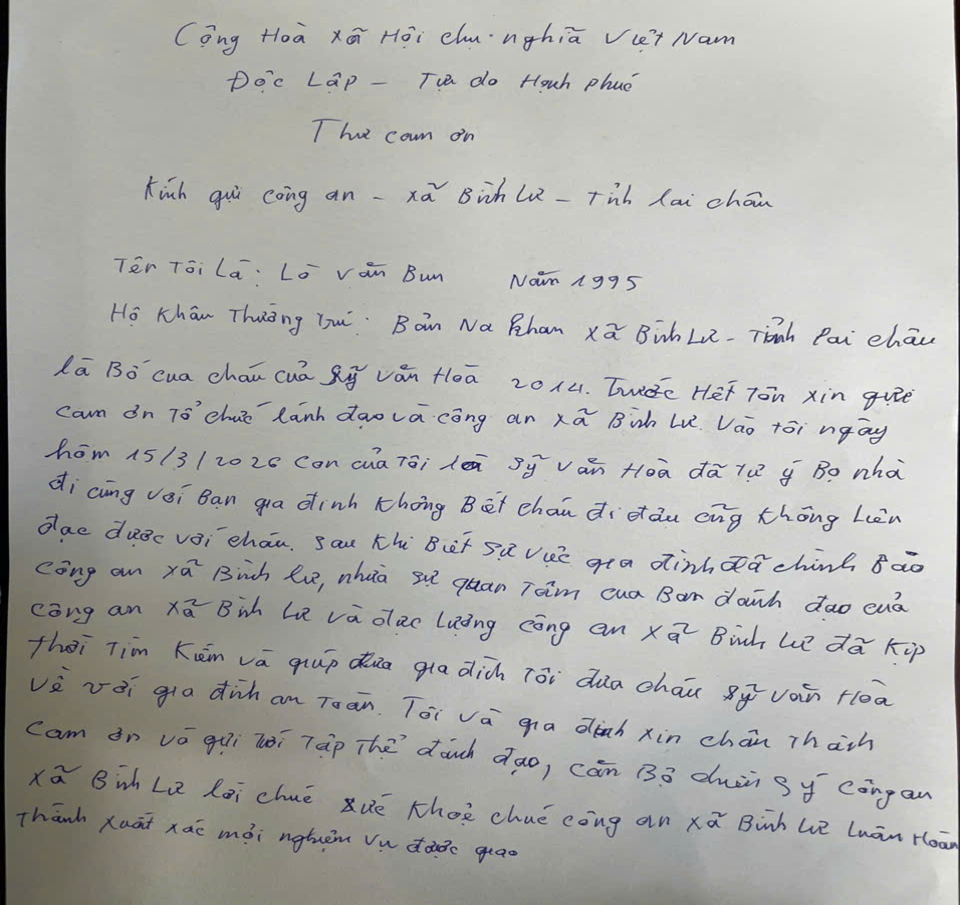 Cộng Hoà Xã Hội chu nghĩã Việt Nam
Độc Lập – Tựa do Hạnh Phúc
Thư cam ơn
Kính gửi công an – xã Bình Lư – Tỉnh lai châu
Tên Tôi Là: Lò Văn Bun Năm 1995
Hộ Khẩu Thường trú: Bản Na Khan Xã Bình Lư – Tỉnh Lai châu
là Bố cua cháu của Sỹ Văn Hoà 2014. Trước Hết Tôn xin gửi
cam ơn Tổ chức lánh đạo và công an xã Bình Lư. Vào tôi ngày
hôm 15/3/2026 con của Tôi là Sỹ Văn Hoà đã Tự ý Bọ nhà
đi cùng với Bạn gia đinh không Biết cháu đi đâu cũg không Liên
đạc được với cháu. Sau Khi Biết Sự vực gia đình đã chình Báo
công an xã Bình lư, nhừa sự quan Tâm cua Ban đánh đạo của
công an xã Bình Lư và đực Lượng công an xã Bình Lư đã Kịp
thời Tìm Kiếm và giúp đưa gia đình Tôi đưa cháu Sỹ Văn Hoà
Về với gia đình an Toàn. Tôi và gia đình xin chân Thành
cam ơn và gửi tới Tập Thể đánh đạo, cán Bộ chiến Sý công an
xã Bình Lư lời chúc sức khoẻ chúc công an xã Bình Lư Luân Hoàn
Thành xuất xắc mọi nghiệm Vụ được giao